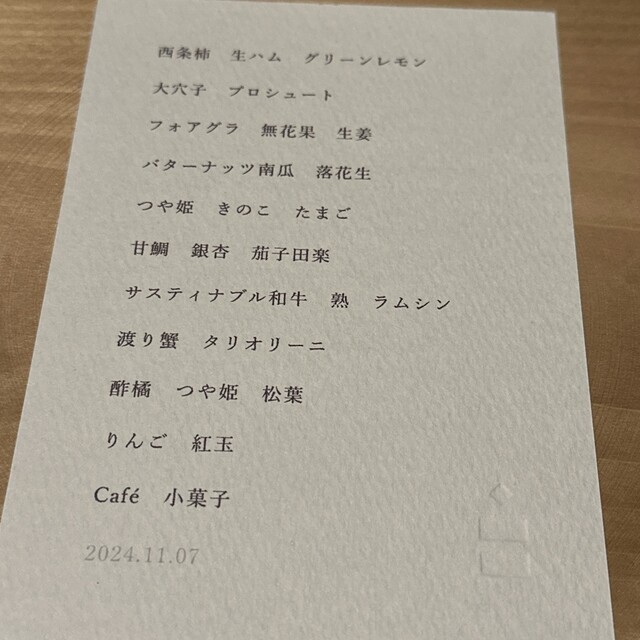 西条柿　生ハム　グリーンレモン
大穴子　プロシュート
フォアグラ　無花果　生姜
バターナッツ南瓜　落花生
つや姫　きのこ　たまご
甘鯛　銀杏　茄子田楽
サスティナブル和牛　熟　ラムシン
渡り蟹　タリオリーニ
酢橘　つや姫　松葉
りんご　紅玉
Café　小菓子
2024.11.07